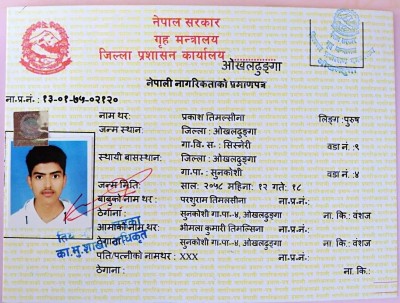 नेपाल सरकार
गृह मन्त्रालय
जिल्ला प्रशासन कार्यालय
ओखलढुङ्गा
नेपाली नागरिकताको प्रमाणपत्र
ना.प्र.नं. : १३-०१-७५-०२१२०
नाम थर: प्रकाश तिमल्सीना लिङ्ग: पुरुष
जन्म स्थान: जिल्ला : ओखलढुङ्गा
गा.वि.स.: सिस्नेरी वडा नं.: ९
स्थायी बासस्थान: जिल्ला : ओखलढुङ्गा
गा.पा.: सुनकोशी वडा नं.: ४
जन्म मिति: साल: २०५८ महिना: १२ गते: १८
बाबुको नाम थर: परशुराम तिमलसीना ना.प्र.नं.:
ठेगाना: सुनकोशी गा.पा.-४, ओखलढुङ्गा ना. कि.: वंशज
आमाको नाम थर: भीमला कुमारी तिमल्सिना ना.प्र.नं.:
ठेगाना: सुनकोशी गा.पा.-४, ओखलढुङ्गा ना. कि.: वंशज
पति/पत्नीको नामथर: XXX ना.प्र.नं.:
ठेगाना: ना. कि.:
का.मु.शाखा अधिकृत